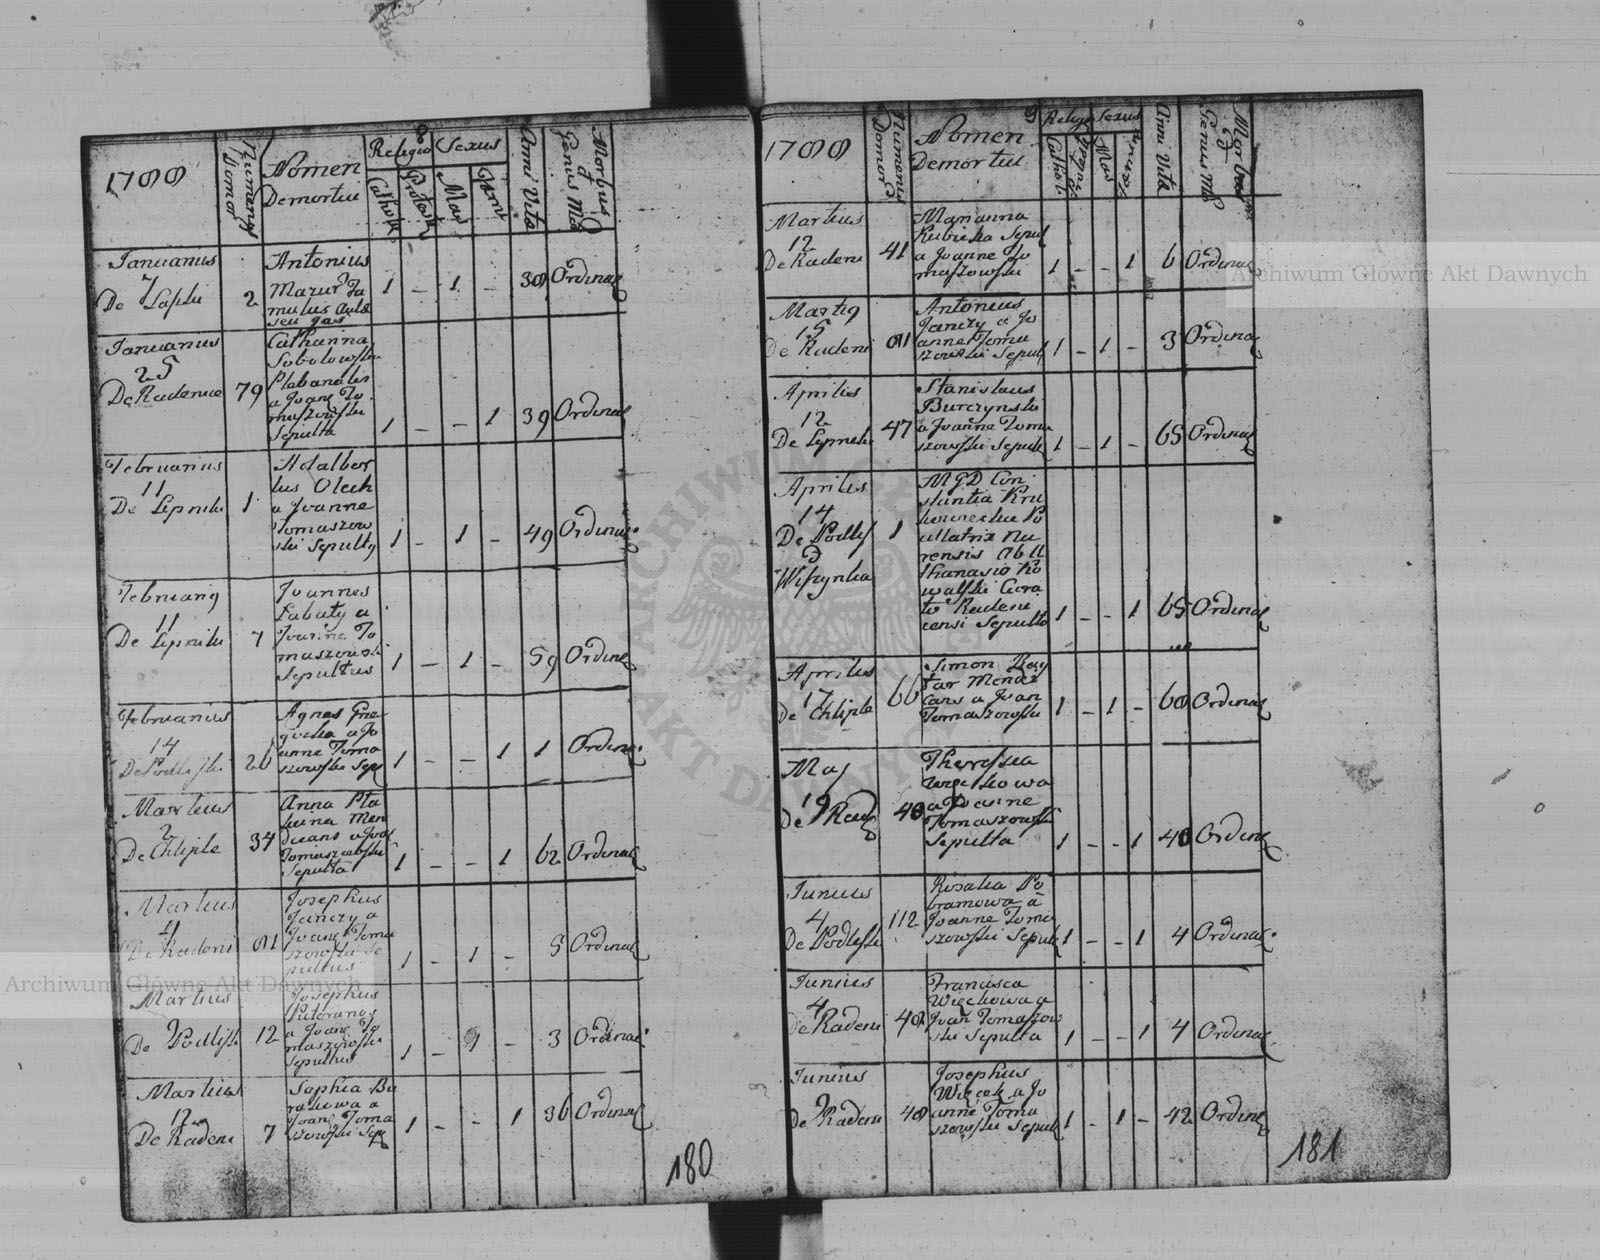 1788
Numerus Domor
Nomen
Demortui
Religio
Cathol.
Sexus
Mas
Foem
Anni Vitae
Morbus
&
Genus
Januarius
7
De
2
Antonius
Mazur Fa
mulus
1 – 1 – 38 Ordinar
Januarius
25
De Radenice
79
Catharina
Sobolowska
Plebanalis
a Joane To
maszowski
Sepulta
1 – – 1 39 Ordinar
Februarius
11
De Lipniki
1
Adalber
tus Olech
a Joanne
Tomaszow
ski Sepultus
1 – 1 – 49 Ordinar
Februarius
11
De Lipniki
7
Joannes
a
Joanne To
maszowski
Sepultus
1 – 1 – 59 Ordinar
Februarius
14
De Podliski
26
Agnes
a Jo
anne Toma
szowski Sep
1 – – 1 1 Ordinar
Martius
2
De Chliple
34
Anna
Men
dicans a Joa
Tomaszowski
Sepulta
1 – – 1 62 Ordinar
Martius
4
De Radeni
81
Josephus
Janczy a
Joane Toma
szowski Se
pultus
1 – 1 – 5 Ordinar
Martius
9
De Podlisk
12
Josephus
a Joane To
maszowski
Sepultus
1 – 1 – 3 Ordinar
Martius
12
De Radeni
7
Sophia Bu
rakowa a
Joane Toma
szowski Sep
1 – – 1 36 Ordinar
180
1788
Numerus
Domor
9
Nomen
Demortui
Religio
Cathol.
Sexus
Mas
Anni Vitae
Morbus
&
Genus
Martius
12
De Radeni
41
Marianna
Kubicka Sepul
a Joanne To
maszowski
1 – – 1 6 Ordinar
Martius
15
De Radeni
81
Antonius
Janczy a Jo
anne Toma
szowski Sepult
1 – 1 – 3 Ordinar
Aprilis
12
De Lipniki
47
Stanislaus
Burczynski
a Joanne Toma
szowski Sepult
1 – 1 – 65 Ordinar
Aprilis
14
De Podlis
&
Wiszynka
1
MGD Con
stantia
rensis ab A
thanasio Ko
walski Cura
to Radeni
censi Sepulta
1 – – 1 65 Ordinar
Aprilis
17
De Chliple
66
Simon
Mendi
cans a Joan
Tomaszowski
1 – 1 – 60 Ordinar
Maj
19
De Rad
48
Theressia
Więckowa
a Joanne
Tomaszowski
Sepulta
1 – – 1 40 Ordinar
Junius
4
De Podliski
112
Rosalia
a
Joanne Toma
szowski Sepult
1 – – 1 4 Ordinar
Junius
4
De Radeni
48
Francisca
Więckowa a
Joan Tomaszow
ski Sepulta
1 – – 1 4 Ordinar
Junius
9
De Radeni
48
Josephus
Więcek a Jo
anne Toma
szowski Sepult
1 – 1 – 42 Ordinar
181
Archiwum Główne Akt Dawnych
Archiwum Główne Akt Dawnych